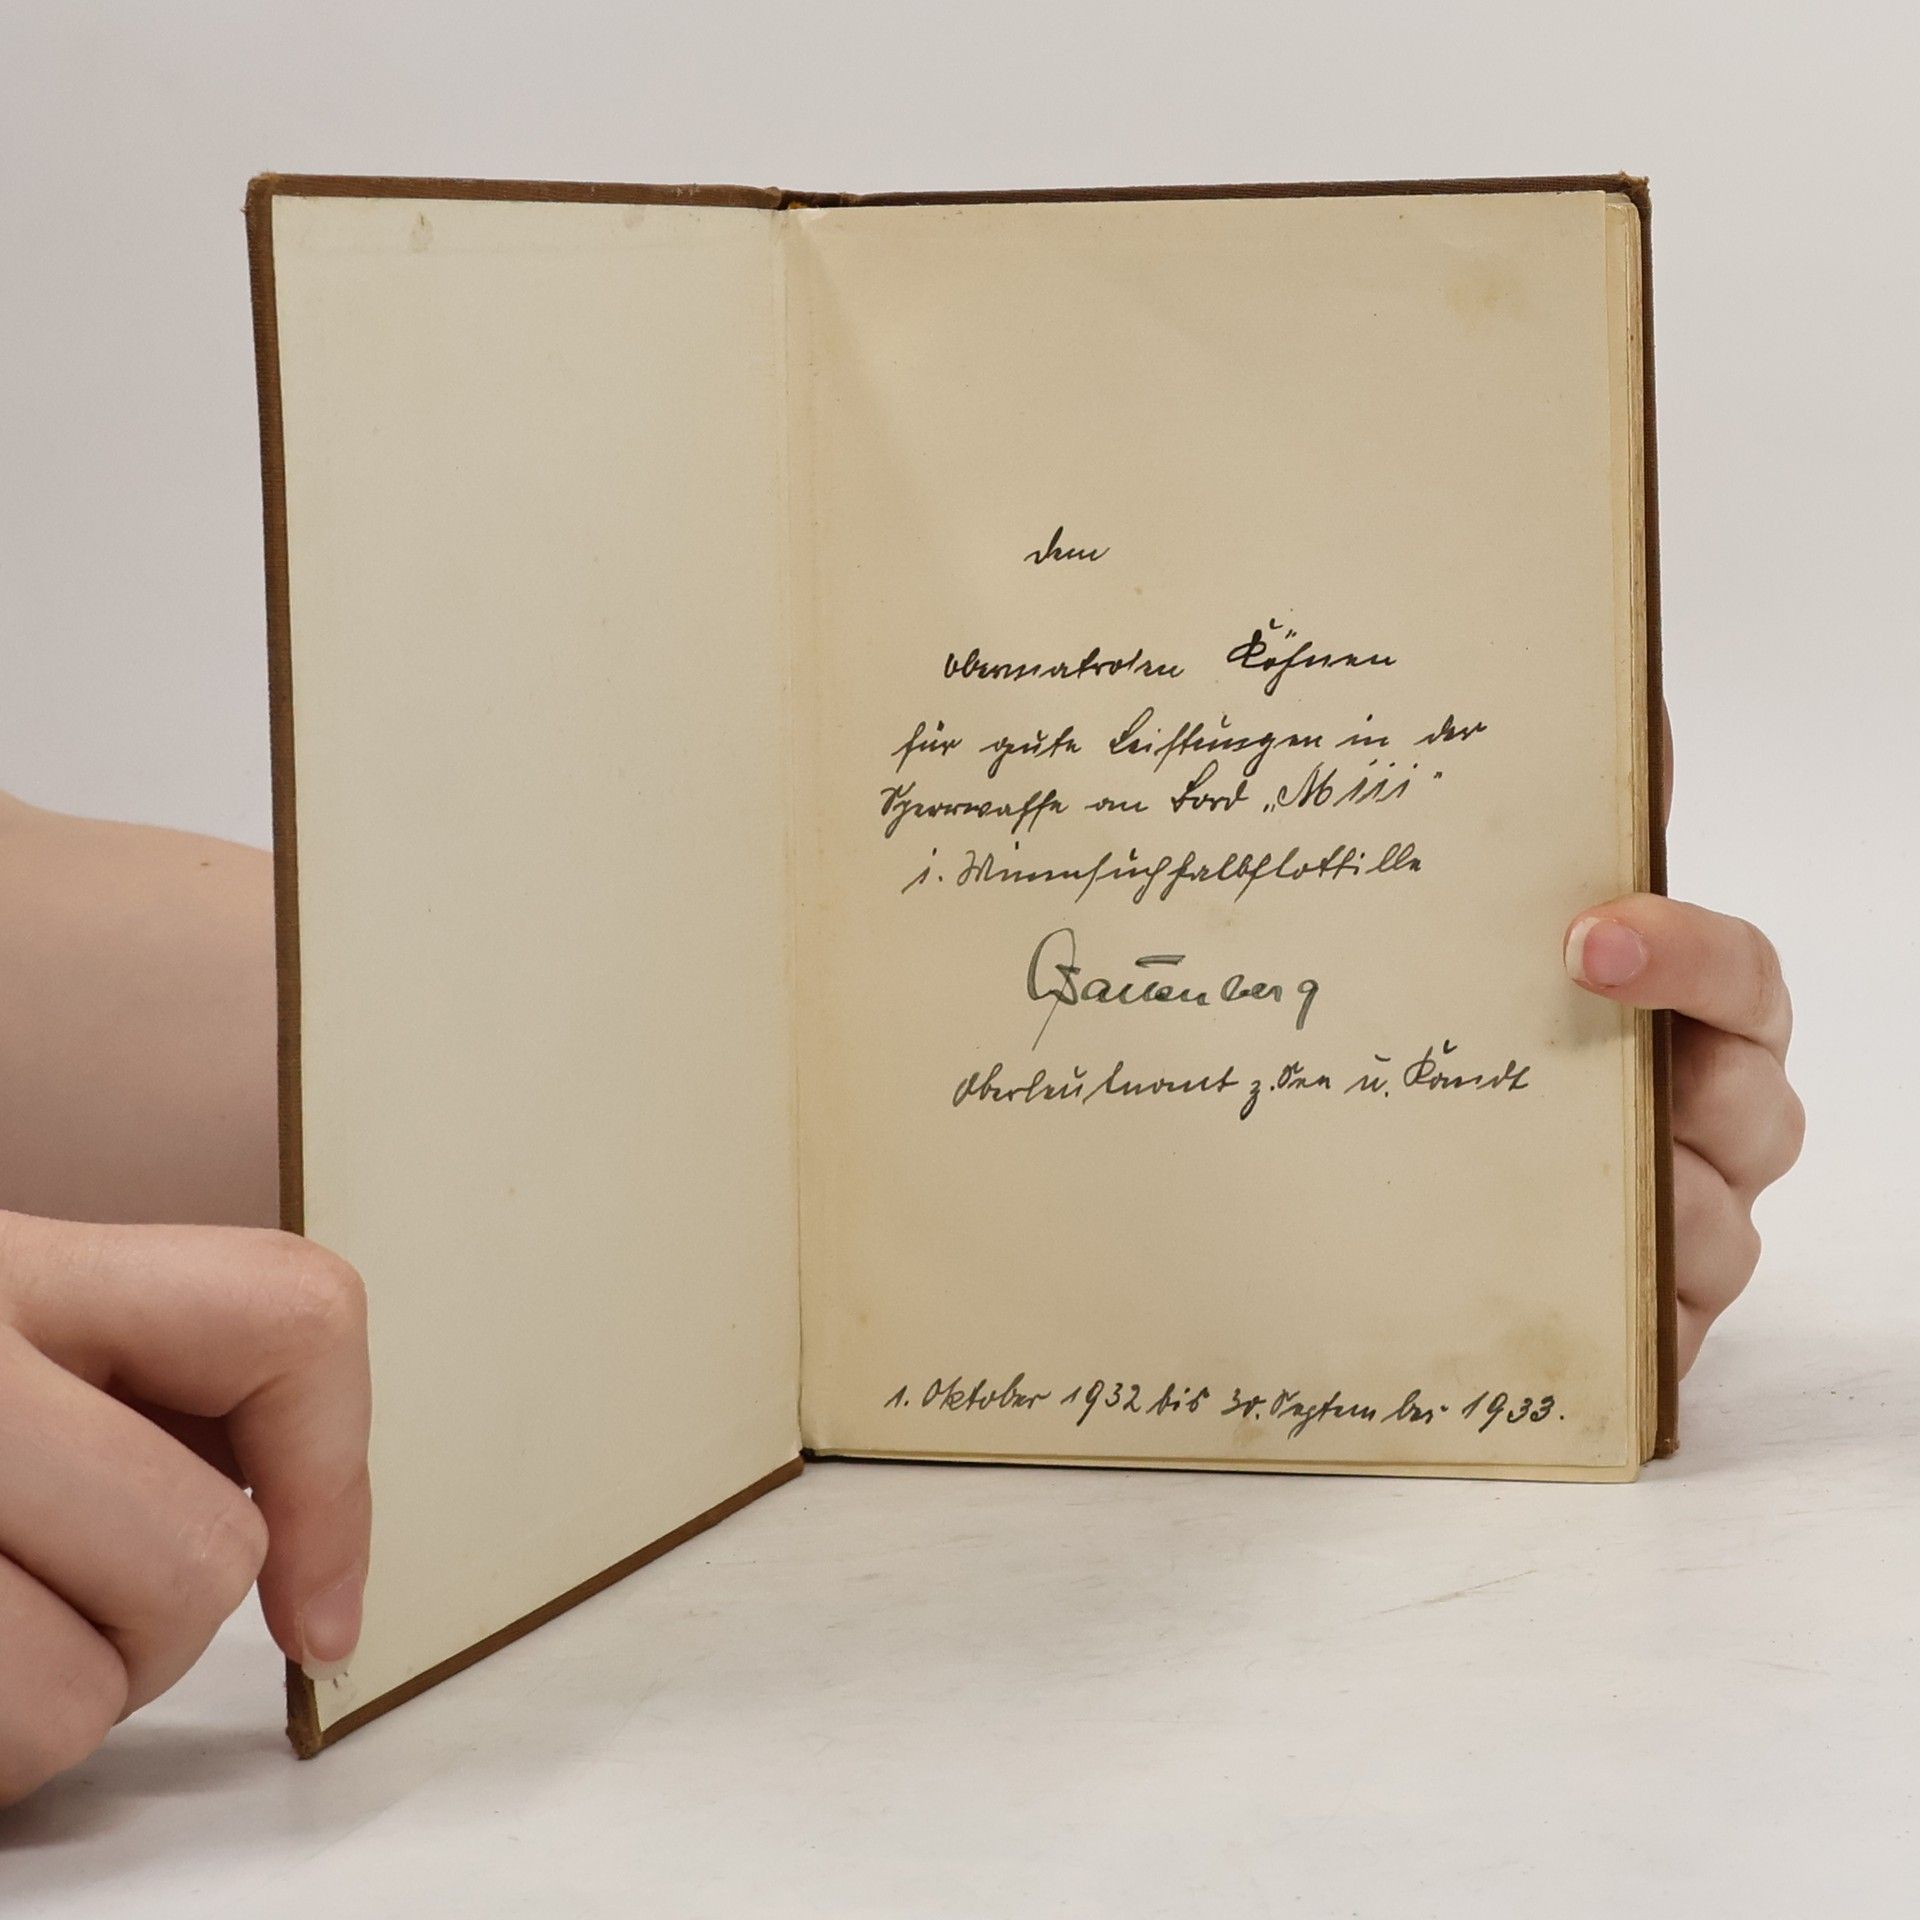 dem
Obermatrosen Köhnen
für gute Leistungen in der
Sperrwaffe an Bord „M 111"
1. Minensuchhalbflottille
Oberleutnant z. See u. Kmdt
1. Oktober 1932 bis 30. September 1933.